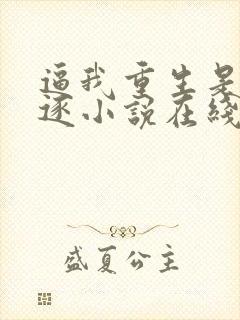 逼我重生是
逐小說在綫
盛夏公主